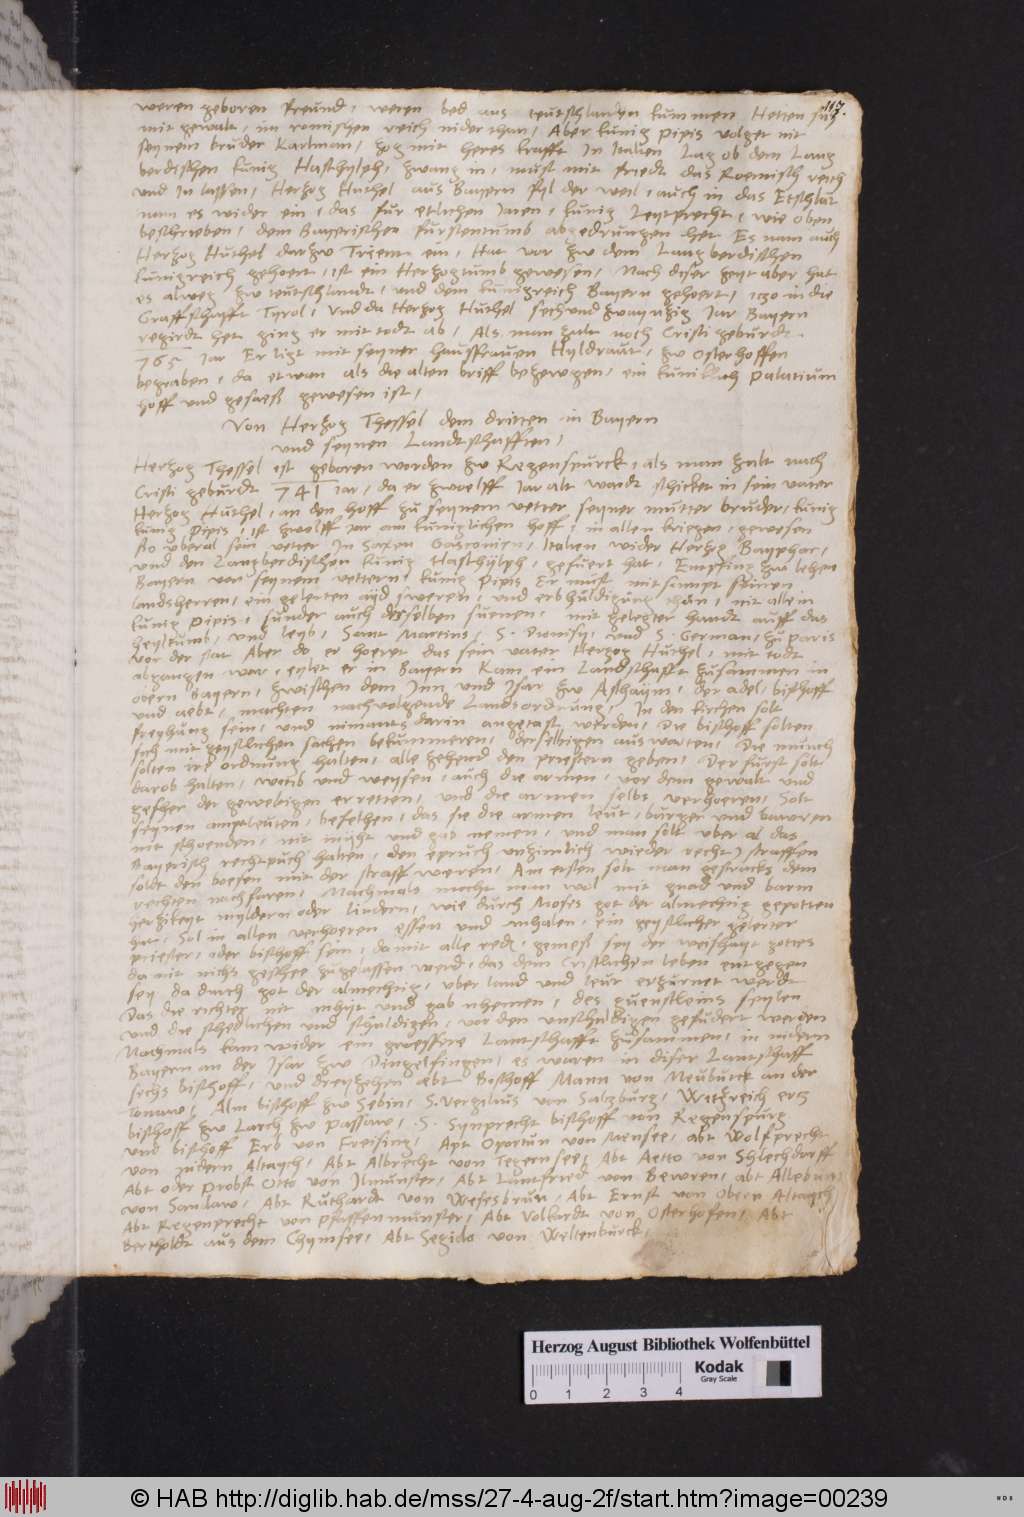 117.
weren geboren freund, weren bed aus teutschlanden kummen Hetten sich
mit gewalt, im romischen reich nider than, Aber kunig Pipis volget nit
seynem bruder Karlman, zog mit heres krafft In Italien Lag ob dem Lang
berdischen kunig Hasthylph, zwang in, must mit friedt das Roemisch reich
und In lassen, Herzog Huthel aus Bayern fyl der weil, auch in das Etschlat
nam es wider ein, das fur etlichen Jaren, kunig Leytprecht, wie oben
beschrieben, dem Bayerischen furstentumb abgedrungen het Es nam auch
Herzog Huthel darzw Trient ein, Hat vor zw dem Langberdischen
kunigreich gehoert, ist ein Herzogtumb gewesen, Nach diser zeyt aber hat
es alweg zw teutschlandt, und dem kunigreich Bayern gehoert, iczo in die
Graffschafft Tyrol, Und da Herzog Huthel sechsund zwaynzig Jar Bayern
regirdt het ging er mit todt ab, Als man zalt noch Cristi geburdt
765 Jar Er ligt mit seyner haussfrauen Hyldraut, zw Osterhoffen
begraben, da etwan als die alten briff bezewgen, ein kuniklich palatium
hoff und gesaeß gewesen ist,
Von Herzog Thessel dem dritten in Bayern
und seynen Landtschafften,
Herzog Thessel ist geboren worden zw Regenspurck, als man zalt nach
Cristi geburdt 741 iar, da er zwoelff Jar alt wardt schicket in sein vater
Herzog Huthel, an den hoff zu seynem vetter seyner mutter bruder, kunig
kunig Pipis, ist zwelff iar am kuniglichen hoff, in allen kriegen, gewesen
so uberal sein vetter In Saxen Gasconien, Italien wider Herzog Bayphar,
und den Langberdischen kunig Hasthylph, gefuert hat, Empfing zw lehen
Bayern von seynem vettern, kunig Pipis Er must mitsampt seinen
landsherren, ein gelerten ayd sweren, und erbhuldigung thun, nit allein
kunig Pipis, sunder auch desselben suenen, mit gelegter handt auff das
heyltumb, und leyb, Sant Martins, S. Dionisy, und S. German, zu paris
vor der stat Aber do er hoeret das sein vater Herzog Huthel, mit todt
abgangen war, eylet er in Bayern Kam ein Landschafft zusammen in
obern Bayern, zwischen dem Inn und Isar zw Aschaym, der adel, bischoff
und aebt, machten nachvolgende Landsordnung, In den kirchen solt
freyhung sein, und nimants darin angetast werden, Die bischoff solten
sich mit geystlichen sachen bekummeren, derselbigen auswarten, Die munch
solten ire ordnung halten, alle zehend den priestern geben, Der furst solt
darob halten, witib und weysen, auch die armen, vor dem gewalt und
gefher der geweltigen erretten, und die armen selbs verhoeren, Solt
seynen amptleuten, befelhen, das sie die armen leut, burger und bawren
nit schoenden, nit miyt und gab nemen, und man solt uber al das
Bayerisch rechtpuch halten, den spruch unzimlich wieder recht, straffen
soldt den boesen mit der straff weren, Am ersten solt man gestracks dem
rechten nachfaren, Nachmals mocht man wol mit gnad und barm
herzikeyt myldern oder lindern, wie durch Moses got der almechtig gepotten
hat, Sol in allen verhoeren essen und mhalen, ein geystlicher gelerter
priester, oder bischoff sein, damit alle red, gemeß sey der weishayt gottes
da mit nichs geschee zugelassen werd, das dem Cristlichen leben entgegen
sey da durch got der almechtig, uber land und leut erzurnet werdt
Das die richter nit mhiyt und gab nhemen, des guenstleins spylen
und die schedlichen und schuldigen, vor den unschuldigen gefudert werden
Nachmals kam wider ein groessere Lantschafft zusammen, in nidern
Bayern an der Isar zw Dingelfingen, es waren in diser Lantschaff
sechs bischoff, und dreyzehen aebt Bischoff Mann von Neuburck an der
tonaw, Alm bischoff zw Sebin, S. Vergilius von Salzburg, Witzreich erz
bischoff zw Larch zw Passaw, S. Synprecht bischoff von Regenspurg
und bischoff Erb von Freising, Apt Oportun von Mensee, abt Wolfprecht
von nidern Altaych, Abt Albrecht von Tegernsee, Abt Aetto von Schlechdorff
Abt oder Probst Otto von Ilmunster, Abt Lantfried von Beworen, abt
von Sandaw, Abt Ruthardt von Wesesbrun, Abt Ernst von Obern Altaych
Abt Regenprecht von Pfaffenmunster, Abt Volkardt von Osterhofen, Abt
Bertholdt aus dem Chymsee, Abt Segido von Weltenburck,
Herzog August Bibliothek Wolfenbüttel
Kodak
Gray Scale
0 1 2 3 4
© HAB http://diglib.hab.de/mss/27-4-aug-2f/start.htm?image=00239